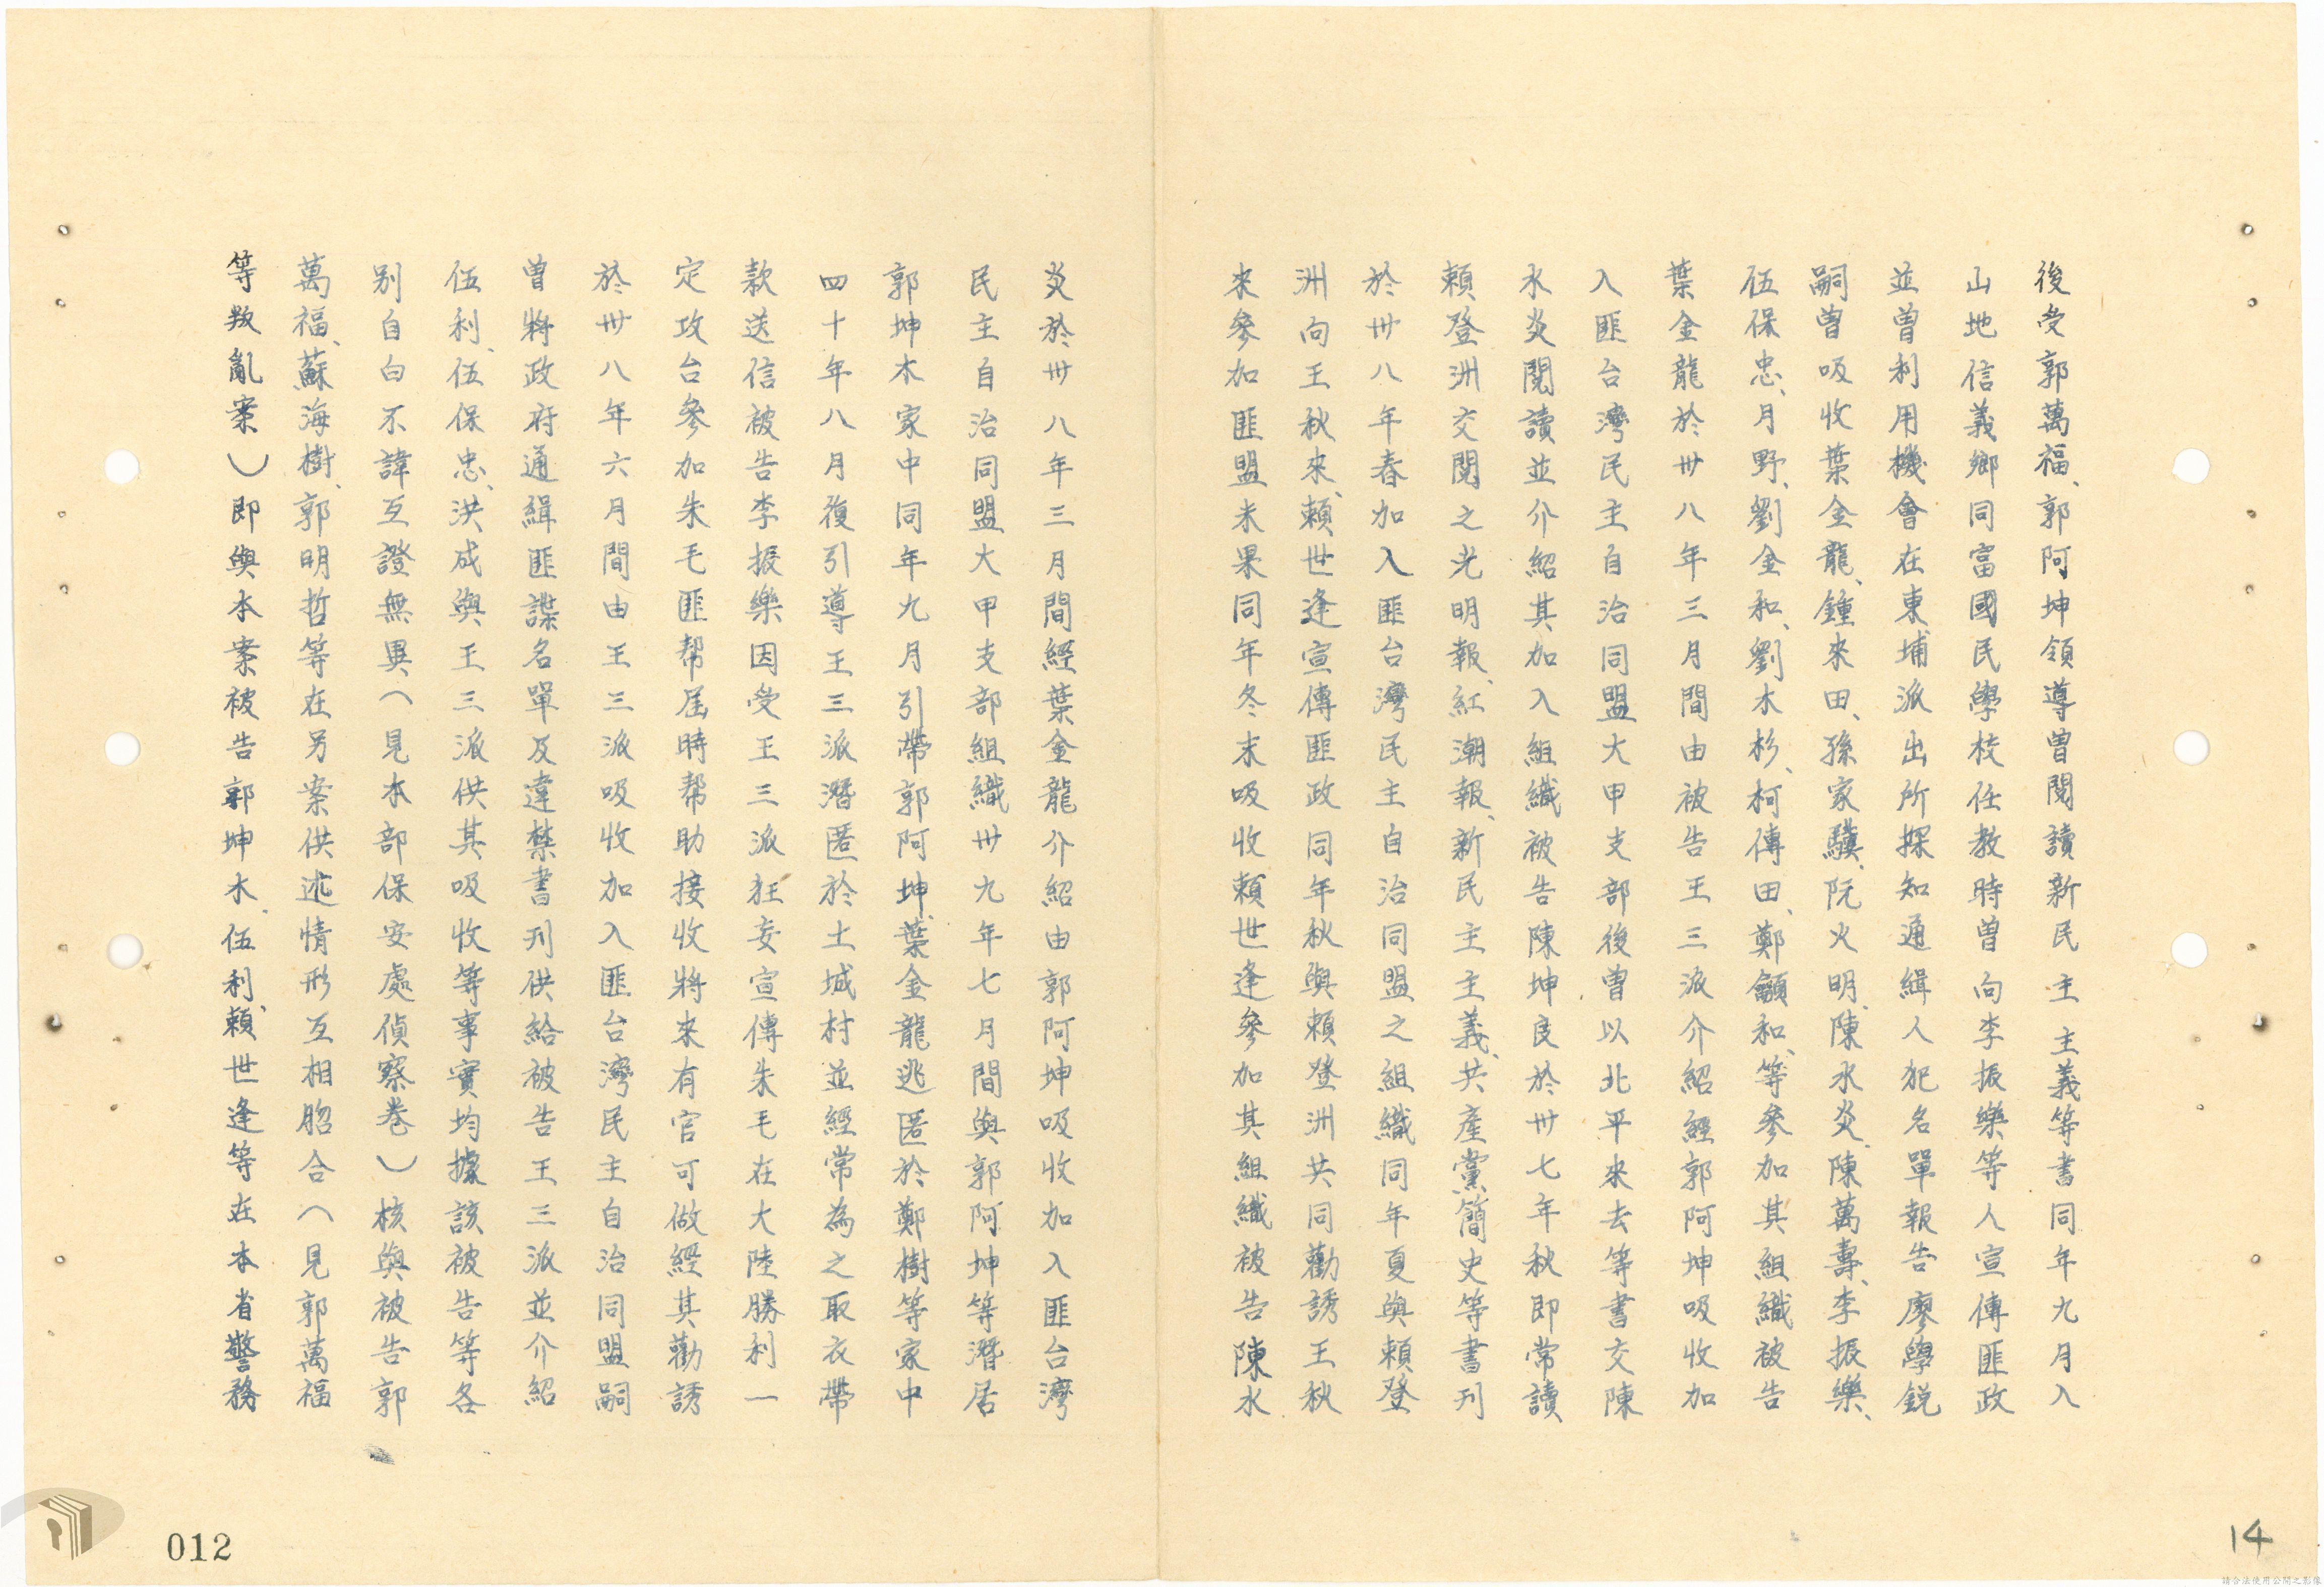 後受郭萬福、郭阿坤領導曾閱讀新民主主義等書同年九月入
山地信義鄉同富國民學校任教時曾向李振樂等人宣傳匪政
並曾利用機會在東埔派出所探知通緝人犯名單報告廖學銳
嗣曾吸收葉金龍、鍾來田、孫家驥、阮火明、陳水炎、陳萬壽、李振樂、
伍保忠、月野、劉金和、劉木杉、柯傳田、鄭龥和、等參加其組織被告
葉金龍於卅八年三月間由被告王三派介紹經郭阿坤吸收加
入匪台灣民主自治同盟大甲支部後曾以北平來去等書交陳
水炎閱讀並介紹其加入組織被告陳坤良於卅七年秋即常讀
賴登洲交閱之光明報、紅潮報、新民主主義、共產黨簡史等書刊
於卅八年春加入匪台灣民主自治同盟之組織同年夏與賴登
洲向王秋來、賴世逢宣傳匪政同年秋與賴登洲共同勸誘王秋
來參加匪盟未果同年冬末吸收賴世逢參加其組織被告陳水
炎於卅八年三月間經葉金龍介紹由郭阿坤吸收加入匪台灣
民主自治同盟大甲支部組織卅九年七月間與郭阿坤等潛居
郭坤木家中同年九月引帶郭阿坤、葉金龍逃匿於鄭樹等家中
四十年八月復引導王三派潛匿於土城村並經常為之取衣帶
款送信被告李振樂因受王三派狂妄宣傳朱毛在大陸勝利一
定攻台參加朱毛匪幫屆時幫助接收將來有官可做經其勸誘
於卅八年六月間由王三派吸收加入匪台灣民主自治同盟嗣
曾將政府通緝匪諜名單及違禁書刊供給被告王三派並介紹
伍利、伍保忠、洪成與王三派供其吸收等事實均據該被告等各
別自白不諱互證無異（見本部保安處偵察卷）核與被告郭
萬福、蘇海樹、郭明哲等在另案供述情形互相脗合（見郭萬福
等叛亂案）即與本案被告郭坤木、伍利、賴世逢等在本省警務
012
14
請合法使用公開之影像